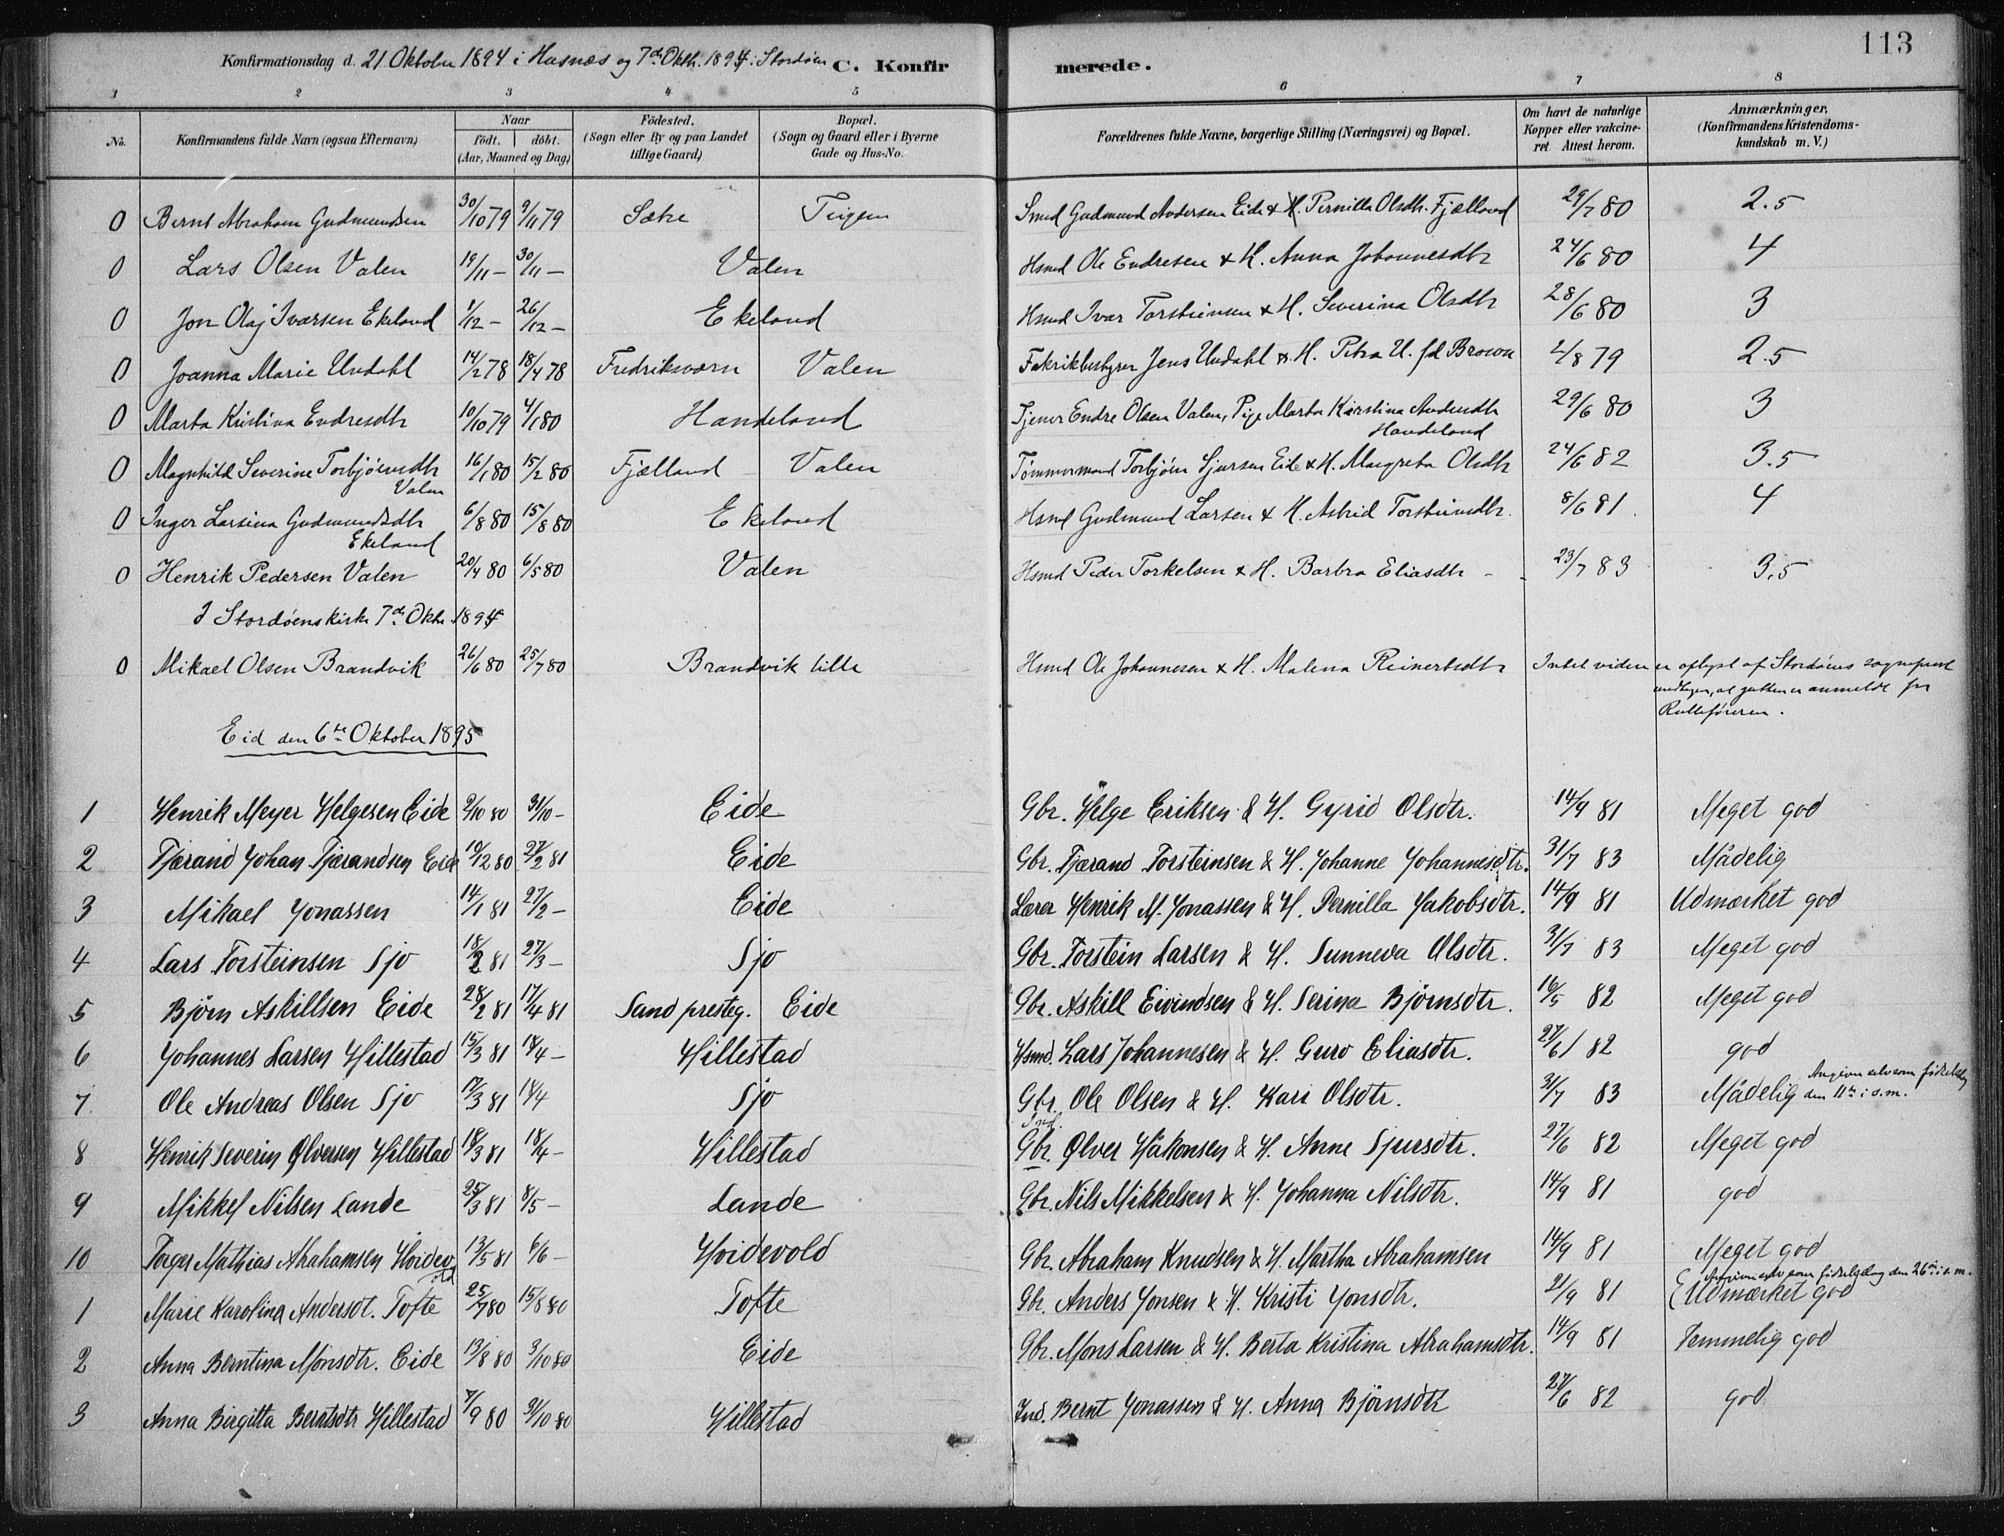 113
Konfirmationsdag d. 21 Oktober 1894 i Husnæs og 7de Oktb. 1894 i Stordøen C. Konfirmerede.
1 2 3 4 5 6 7 8
No. Konfirmandens fulde Navn (ogsaa Efternavn) Naar födt. döbt. (Aar, Maaned og Dag) Födested. (Sogn eller By og paa Landet tillige Gaard) Bopæl. (Sogn og Gaard eller i Byerne Gade og Hus-No. Forældrenes fulde Navne, borgerlige Stilling (Næringsvei) og Bopæl. Om havt de naturlige Kopper eller vakcineret Attest herom. Anmærkninger, (Konfirmandens Kristendomskundskab m. V.)
0 Bernt Abraham Gudmundsen 30/10 79 9/11 79 Sætre Teigen Smed Gudmund Andersen Eide & H. Pernilla Olsdtr. Fjælland 29/7 80 2.5
0 Lars Olsen Valen 19/11 – 30/11 – Valen Hsmd Ole Endresen & H. Anna Johannesdtr 24/6 80 4
0 Jon Olaj Ivarsen Ekeland 1/12 – 26/12 – Ekeland Hsmd Ivar Torsteinsen & H. Severina Olsdtr 28/6 80 3
0 Joanna Marie Undahl 14/2 78 18/4 78 Fredriksværn Valen Fabrikbestyrer Jens Undahl & H. Petra U. fd Brown 2/8 79 2.5
0 Marta Kristina Endresdtr 10/10 79 4/1 80 Handeland Tjener Endre Olsen Valen, Pige Marta Kirstina Andersdtr Handeland 29/6 80 3
0 Magnhild Severine Torbjørnsdtr Valen 16/1 80 15/2 80 Fjælland Valen Tømmermand Torbjörn Sjursen Eide & H. Margreta Olsdtr 24/6 82 3.5
0 Inger Larsina Gudmundsdtr Ekeland 6/8 80 15/8 80 Ekeland Hsmd Gudmund Larsen & H. Astrid Torsteinsdtr. 8/6 81. 4
0 Henrik Pedersen Valen 20/4 80 6/5 80 Valen Hsmd Peder Torkelsen & H. Barbra Eliasdtr – 23/7 83 3.5
I Stordöens kirke 7de Oktbr 1894
0 Mikael Olsen Brandvik 26/6 80 25/7 80 Brandvik lille Hsmd Ole Johannesen & H. Malena Reinertsdtr Intet videre er oplyst af Stordöens sogneprest
undtagen, at gutten er anmeldt for
Rulleføreren.
Eid den 6te Oktober 1895
1 Henrik Meyer Helgesen Eide 2/10 80 31/10 – Eide Gbr. Helge Eriksen & H. Gyrid Olsdtr. 14/9 81 Meget god
2 Tjærand Johan Tjærandsen Eide 10/12 80 27/2 81 Eide Gbr. Tjærand Torsteinsen & H. Johanne Johannesdtr. 31/7 83 Mådelig
3 Mikael Jonassen 14/1 81 27/2 – Eide Lærer Henrik M. Jonassen & H. Pernilla Jakobsdtr. 14/9 81 Udmærket god
4 Lars Torsteinsen Sjo 18/2 81 27/3 – Sjo Gbr. Torstein Larsen & H. Sunneva Olsdtr. 31/7 83 Meget god
5 Björn Askillsen Eide 28/2 81 17/4 81 Sand presteg. Eide Gbr. Askill Eivindsen & H. Serina Björnsdtr. 16/5 82 Meget god
6 Johannes Larsen Hillestad 15/3 81 18/4 – Hillestad Hsmd. Lars Johannesen & H. Guro Eliasdtr. 27/6 82 god
7. Ole Andreas Olsen Sjo 17/3 81 18/4 Sjo Gbr. Ole Olsen & H. Kari Olsdtr. 31/7 83 Mådelig Angiver selv som fødselsdag den 11te i s.m.
8 Henrik Severin Ølversen Hillestad 18/3 81 18/4 – Hillestad Ind. Gbr. Ølver Håkonsen & H. Anne Sjursdtr. 27/6 82 Meget god
9 Mikkel Nilsen Lande 25/3 81 8/5 – Lande Gbr. Nils Mikkelsen & H. Johanna Nilsdtr. 14/9 81 god
10 Torger Mathias Abrahamsen Høidevold 13/5 81 6/6 – Høidevold Gbr. Abraham Knudsen & H. Martha Abrahamsen 14/9 81 Meget god
1 Marie Karolina Andersdt. Tofte 25/7 80 15/8 80 Tofte Gbr. Anders Jonsen & H. Kristi Jonsdtr. 2/9 81 Angiver selv som fødselsdag den 26de i s.m. Udmærket god
2 Anna Berntina Monsdtr. Eide 13/8 80 3/10 80 Eide Gbr. Mons Larsen & H. Berta Kristina Abrahamsdtr. 14/9 81 Temmelig god
3 Anna Birgitta Berntsdtr Hillestad 7/9 80 31/10 80 Hillestad Ind. Bernt Jonassen & H. Anna Björnsdtr 27/6 82 god